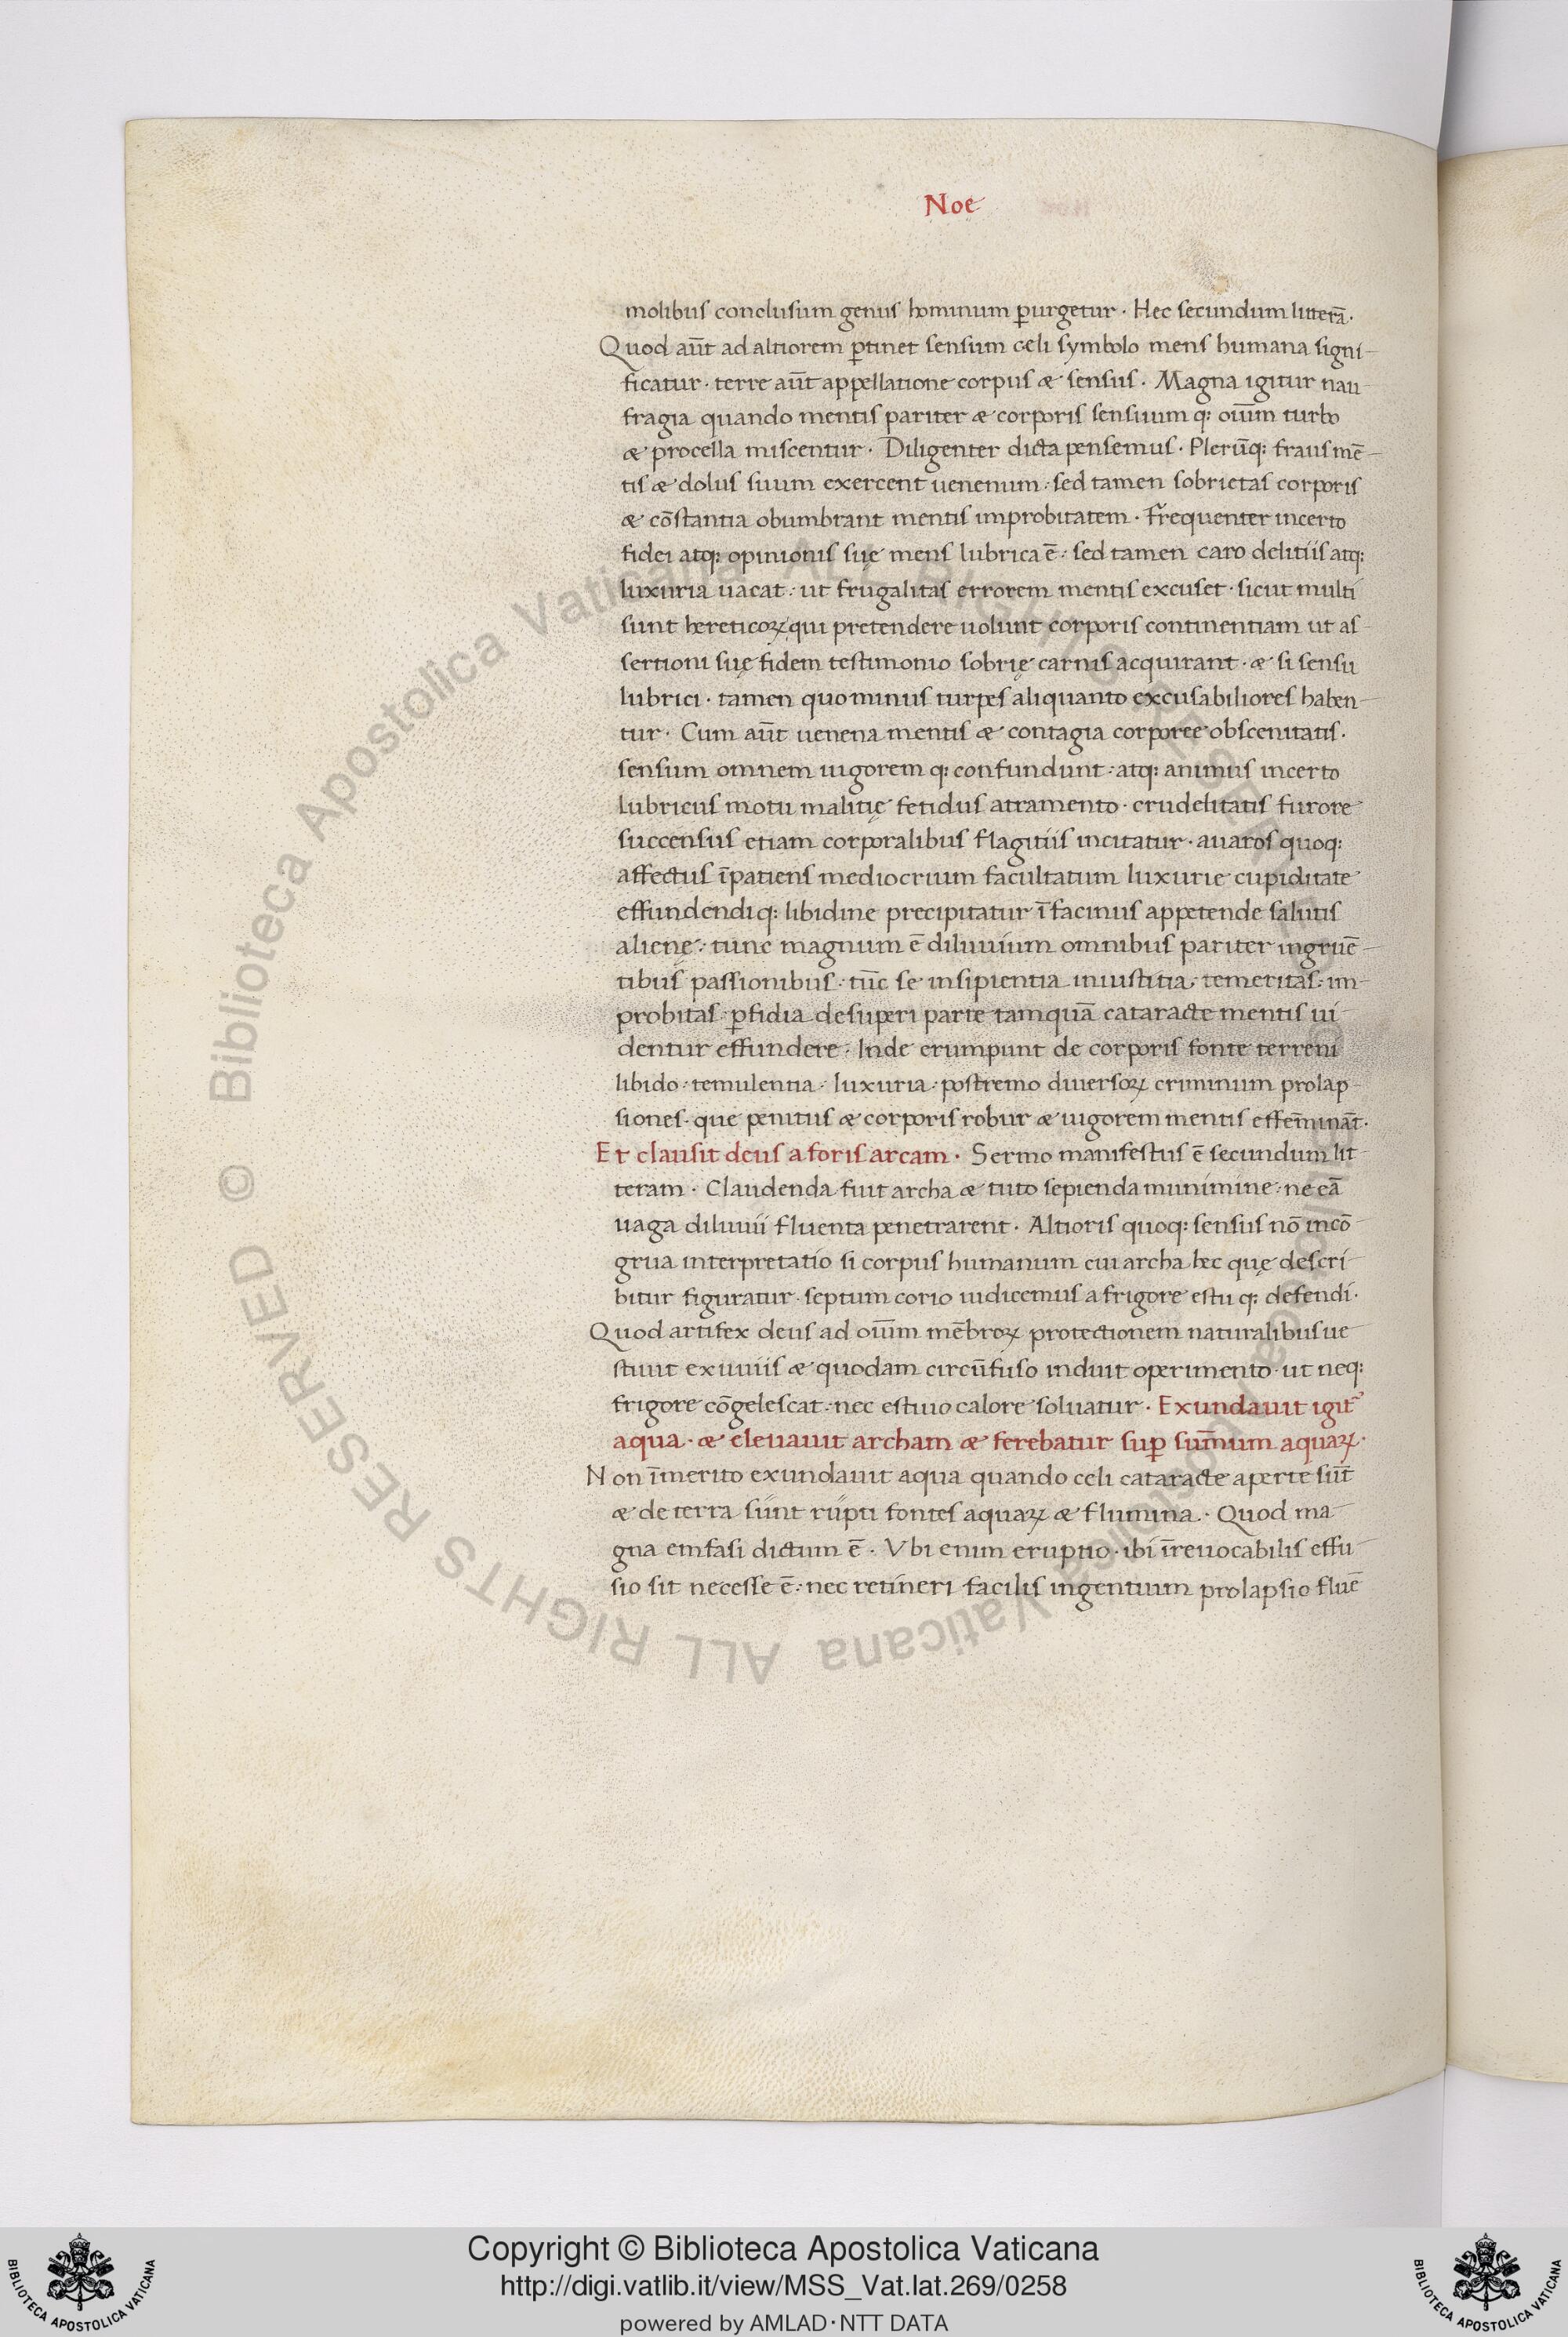 Noe
molibus conclusum genus hominum p̄urgetur · Hec secundum litterā ·
Quod aūt ad altiorem p̄tinet sensum celi symbolo mens humana signi-
ficatur · terre aūt appellatione corpus æ sensus · Magna igitur nau-
fragia quando mentis pariter æ corporis sensuum q: oium̄ turbo
æ procella miscentur · Diligenter dicta pensemus · Plerūq: fraus mē-
tis æ dolus suum exercent uenenum : sed tamen sobrietas corporis
æ cōstantia obumbrant mentis improbitatem · Frequenter incerto
fidei atq: opinionis suę mens lubrica ē : sed tamen caro delitiis atq:
luxuria uacat : ut frugalitas errorem mentis excuset · sicut multi
sunt hereticoꝝ qui pretendere uolunt corporis continentiam ut as-
sertioni suę fidem testimonio sobrię carnis acquirant · æ si sensu
lubrici · tamen quominus turpes aliquanto excusabiliores haben-
tur · Cum aūt uenena mentis æ contagia corporee obscenitatis ·
sensum omnem uigorem q: confundunt : atq: animus incerto
lubricus motu malitię fetidus atramento · crudelitatis furore
succensus etiam corporalibus flagitiis incitatur · auaros quoq:
affectus īpatiens mediocrium facultatum luxurie cupiditate
effundendi q: libidine precipitatur ī facinus appetende salutis
alienę : tunc magnum ē diluuium omnibus pariter ingruē-
tibus passionibus : tūc se insipientia iniustitia : temeritas : im-
probitas : p̄fidia de superi parte tamquā cataracte mentis ui-
dentur effundere : Inde erumpunt de corporis fonte terreni
libido : temulentia : luxuria : postremo diuersoꝝ criminum prolap-
siones · que penitus æ corporis robur æ uigorem mentis effem̄ināt ·
Et clausit deus a foris arcam · Sermo manifestus ē secundum lit-
teram · Claudenda fuit archa æ tuto sepienda munimine : ne eā
uaga diluuii fluenta penetrarent · Altioris quoq: sensus nō incō-
grua interpretatio si corpus humanum cui archa hec quę descri-
bitur figuratur · septum corio iudicemus a frigore estu q: defendi ·
Quod artifex deus ad oium̄ mēbroꝝ protectionem naturalibus ue-
stiuit exuuiis æ quodam circūfuso induit operimento · ut neq:
frigore cōgelescat : nec estiuo calore soluatur · Exundauit igit᷑
aqua · æ eleuauit archam æ ferebatur sup̄ sum̄um aquaꝝ ·
Non īmerito exundauit aqua quando celi cataracte aperte sūt
æ de terra sunt rupti fontes aquaꝝ æ flumina · Quod ma-
gna emfasi dictum ē · Vbi enim eruptio · ibi īreuocabilis effu-
sio sit necesse ē : nec retineri facilis ingentium prolapsio fluē
© Biblioteca Apostolica Vaticana ALL RIGHTS RESERVED
© Biblioteca Apostolica Vaticana ALL RIGHTS RESERVED
Copyright © Biblioteca Apostolica Vaticana
http://digi.vatlib.it/view/MSS_Vat.lat.269/0258
powered by AMLAD·NTT DATA
BIBLIOTECA APOSTOLICA VATICANA
BIBLIOTECA APOSTOLICA VATICANA